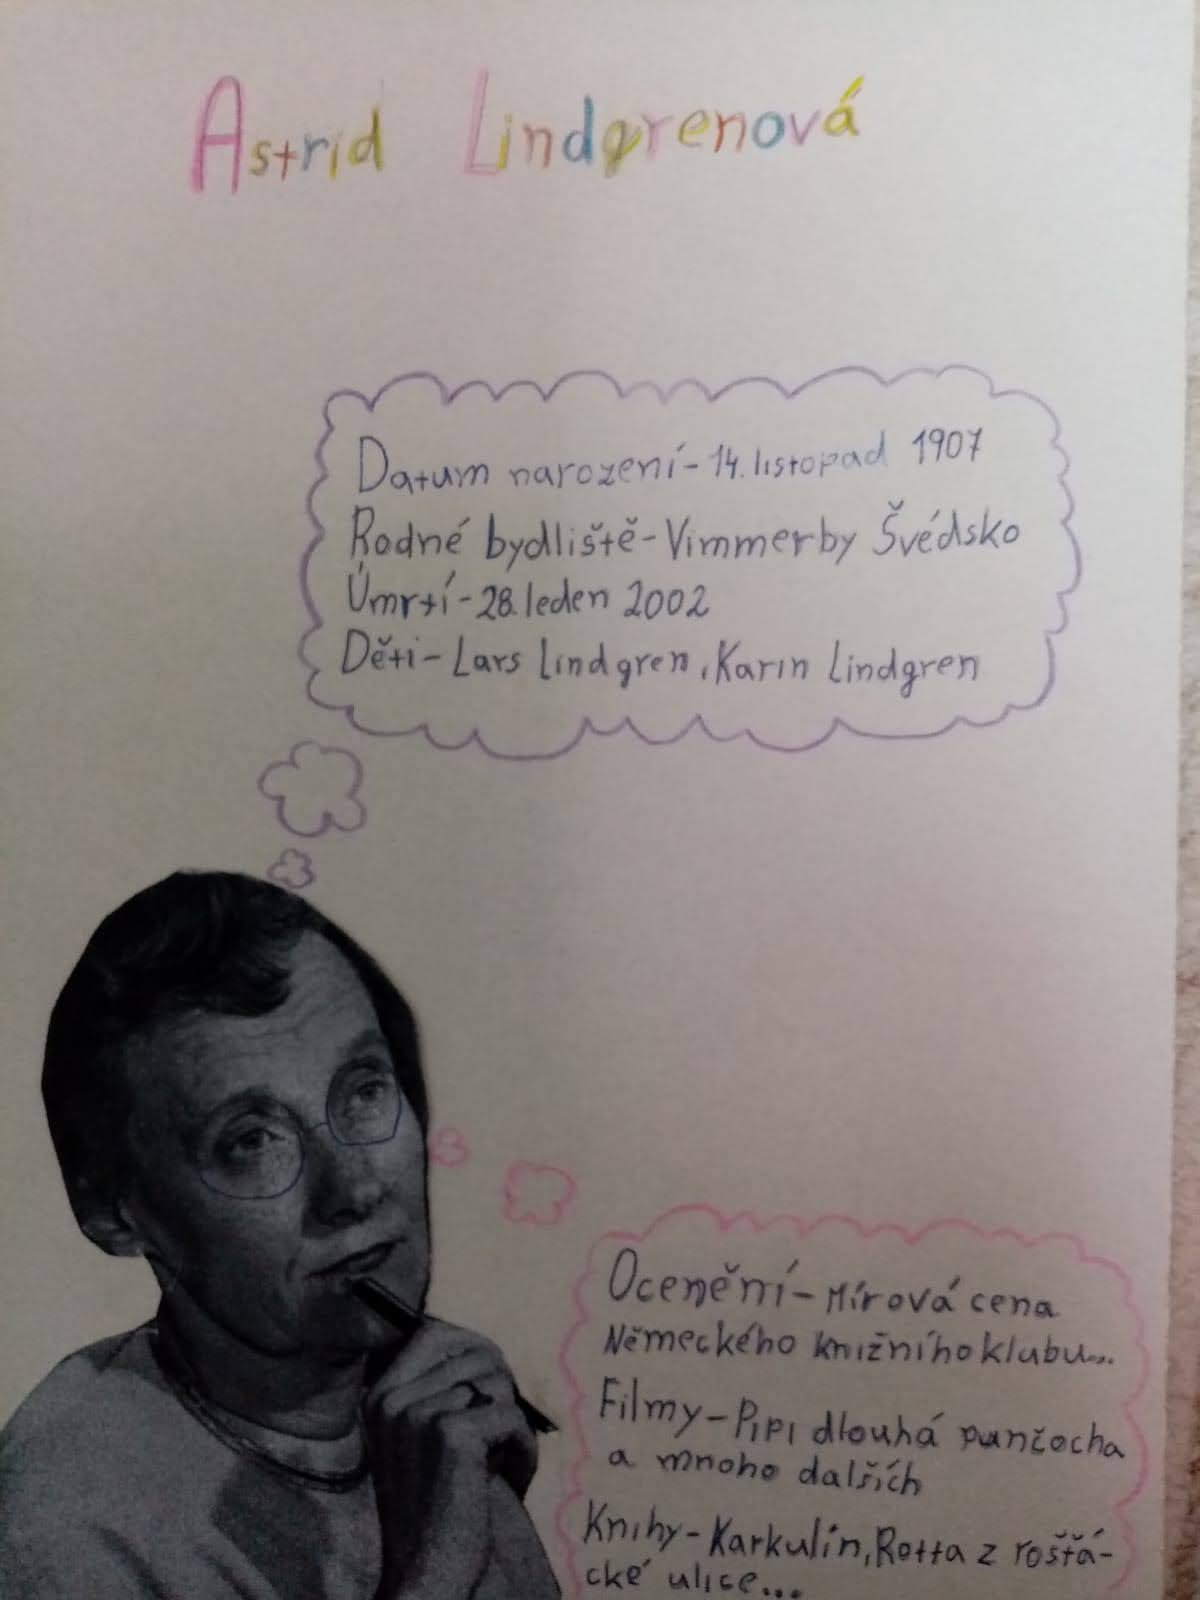 Astrid Lindgrenová
Datum narození-14. listopad 1907
Rodné bydliště-Vimmerby Švédsko
Úmrtí-28. leden 2002
Děti-Lars Lindgren, Karin Lindgren
Ocenění-Mírová cena
Německého knižního klubu...
Filmy-Pipi dlouhá punčocha
a mnoho dalších
Knihy-Karkulín, Rotta z rošťá-
cké ulice...